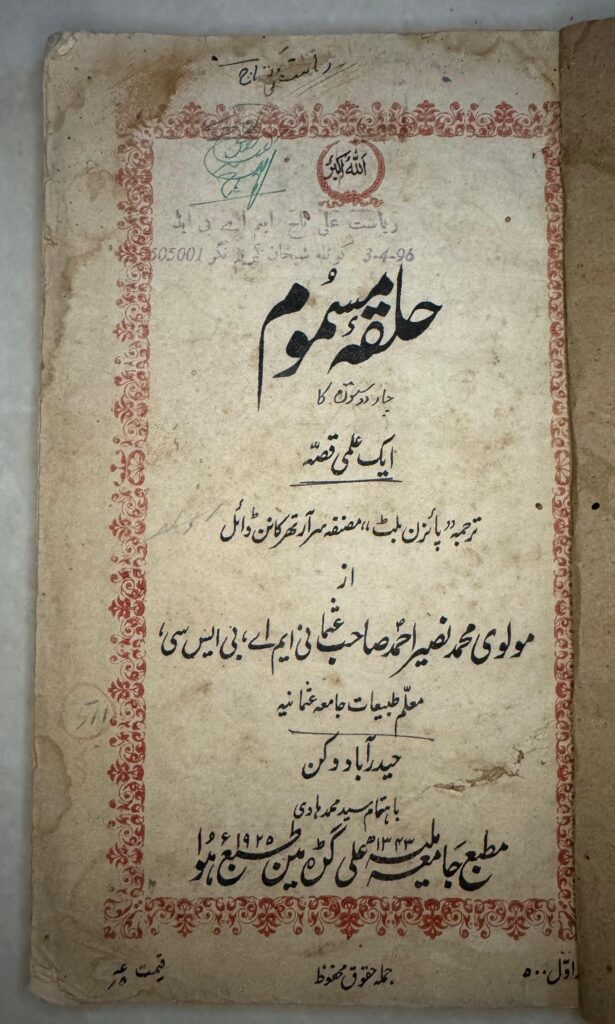 ریاست علی تاج
اللہ اکبر
ریاست علی تاج ایم اے بی ایڈ
3-4-96 کوٹلہ شیخان کریم نگر 505001
حلقۂ مسموم
کا
ایک علمی قصّہ
ترجمہ "پائزن بلٹ" مصنفہ سر آرتھر کانن ڈائل
از
مولوی محمد نصیر احمد صاحب عثمانی ایم اے، بی ایس سی،
معلّم طبیعات جامعہ عثمانیہ
حیدرآباد دکن
باہتمام سید محمد ہادی
مطبع جامعہ ملیہ علی گڑھ میں طبع ہوا
۱۳۴۳ھ ۱۹۲۵ء
اوّل ۵۰۰
جملہ حقوق محفوظ
قیمت